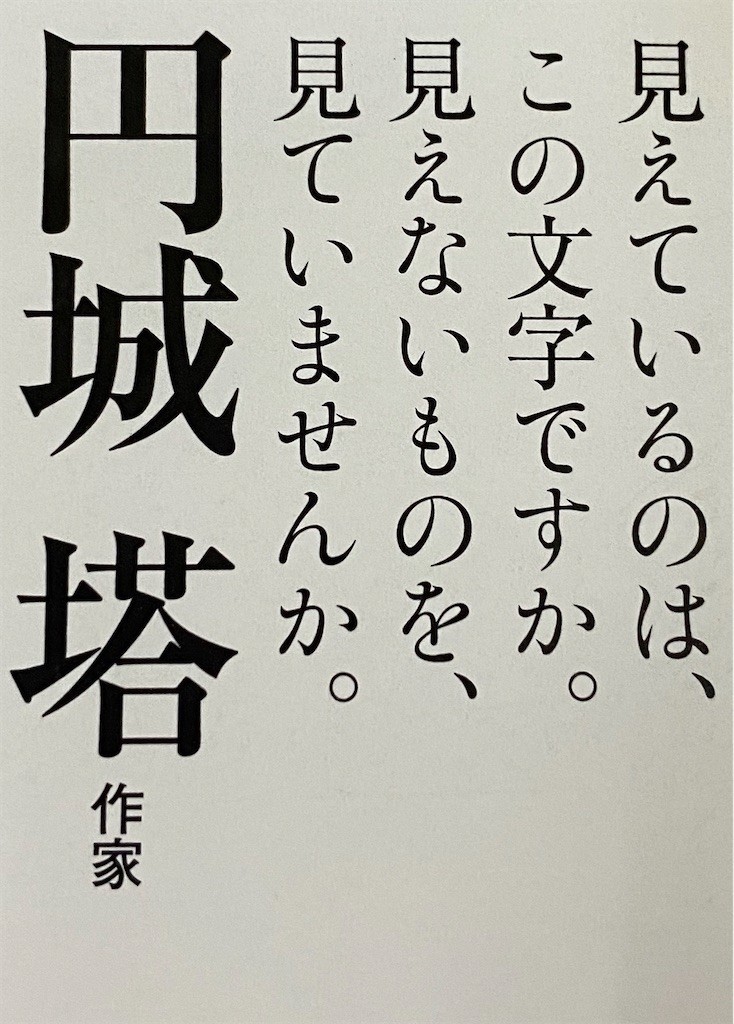 見えているのは、
この文字ですか。
見えないものを、
見ていませんか。
円城 塔
作家